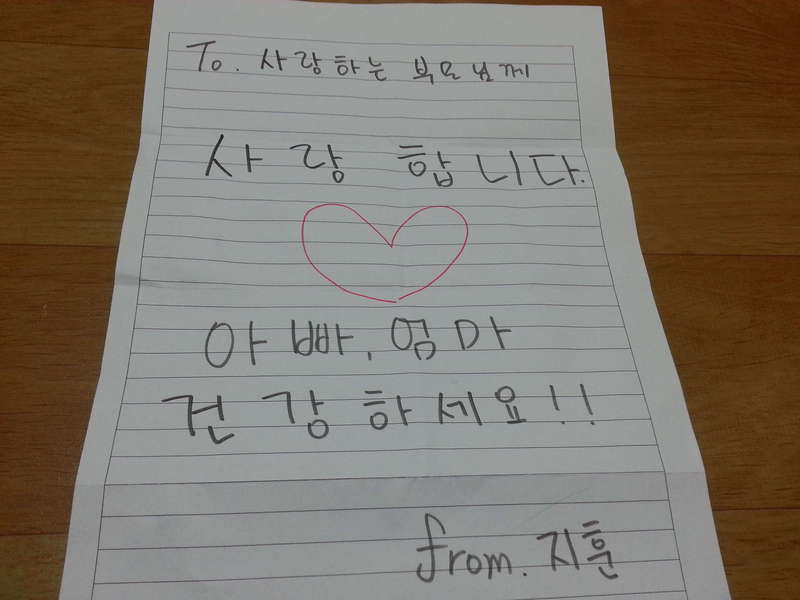 To. 사랑하는 부모님께
사랑 합니다.
아빠, 엄마
건강하세요!!
from. 지훈